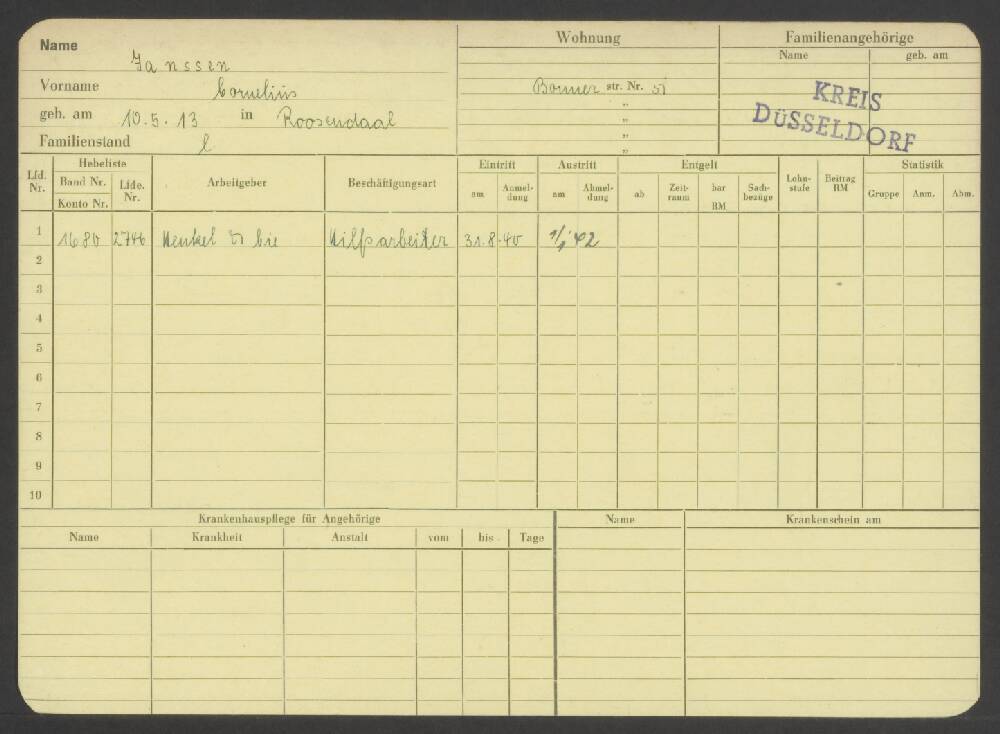 Name Janssen
Vorname Cornelius
geb. am 10.5.13 in Roosendaal
Familienstand l
Wohnung
Bonner str. Nr. 51
„
„
„
„
Familienangehörige
Name geb. am
KREIS
DÜSSELDORF
Lfd. Nr. Hebeliste Arbeitgeber Beschäftigungsart Eintritt Austritt Entgelt Lohn-stufe Beitrag RM Statistik
Band Nr. Lfde. Nr. am Anmel-dung am Abmel-dung ab Zeit-raum bar RM Sach-bezüge Gruppe Anm. Abm.
Konto Nr.
1 1680 2746 Henkel & Cie Hilfsarbeiter 31.8.40 1/1 42
2
3
4
5
6
7
8
9
10
Krankenhauspflege für Angehörige
Name Krankheit Anstalt vom bis Tage
Name Krankenschein am